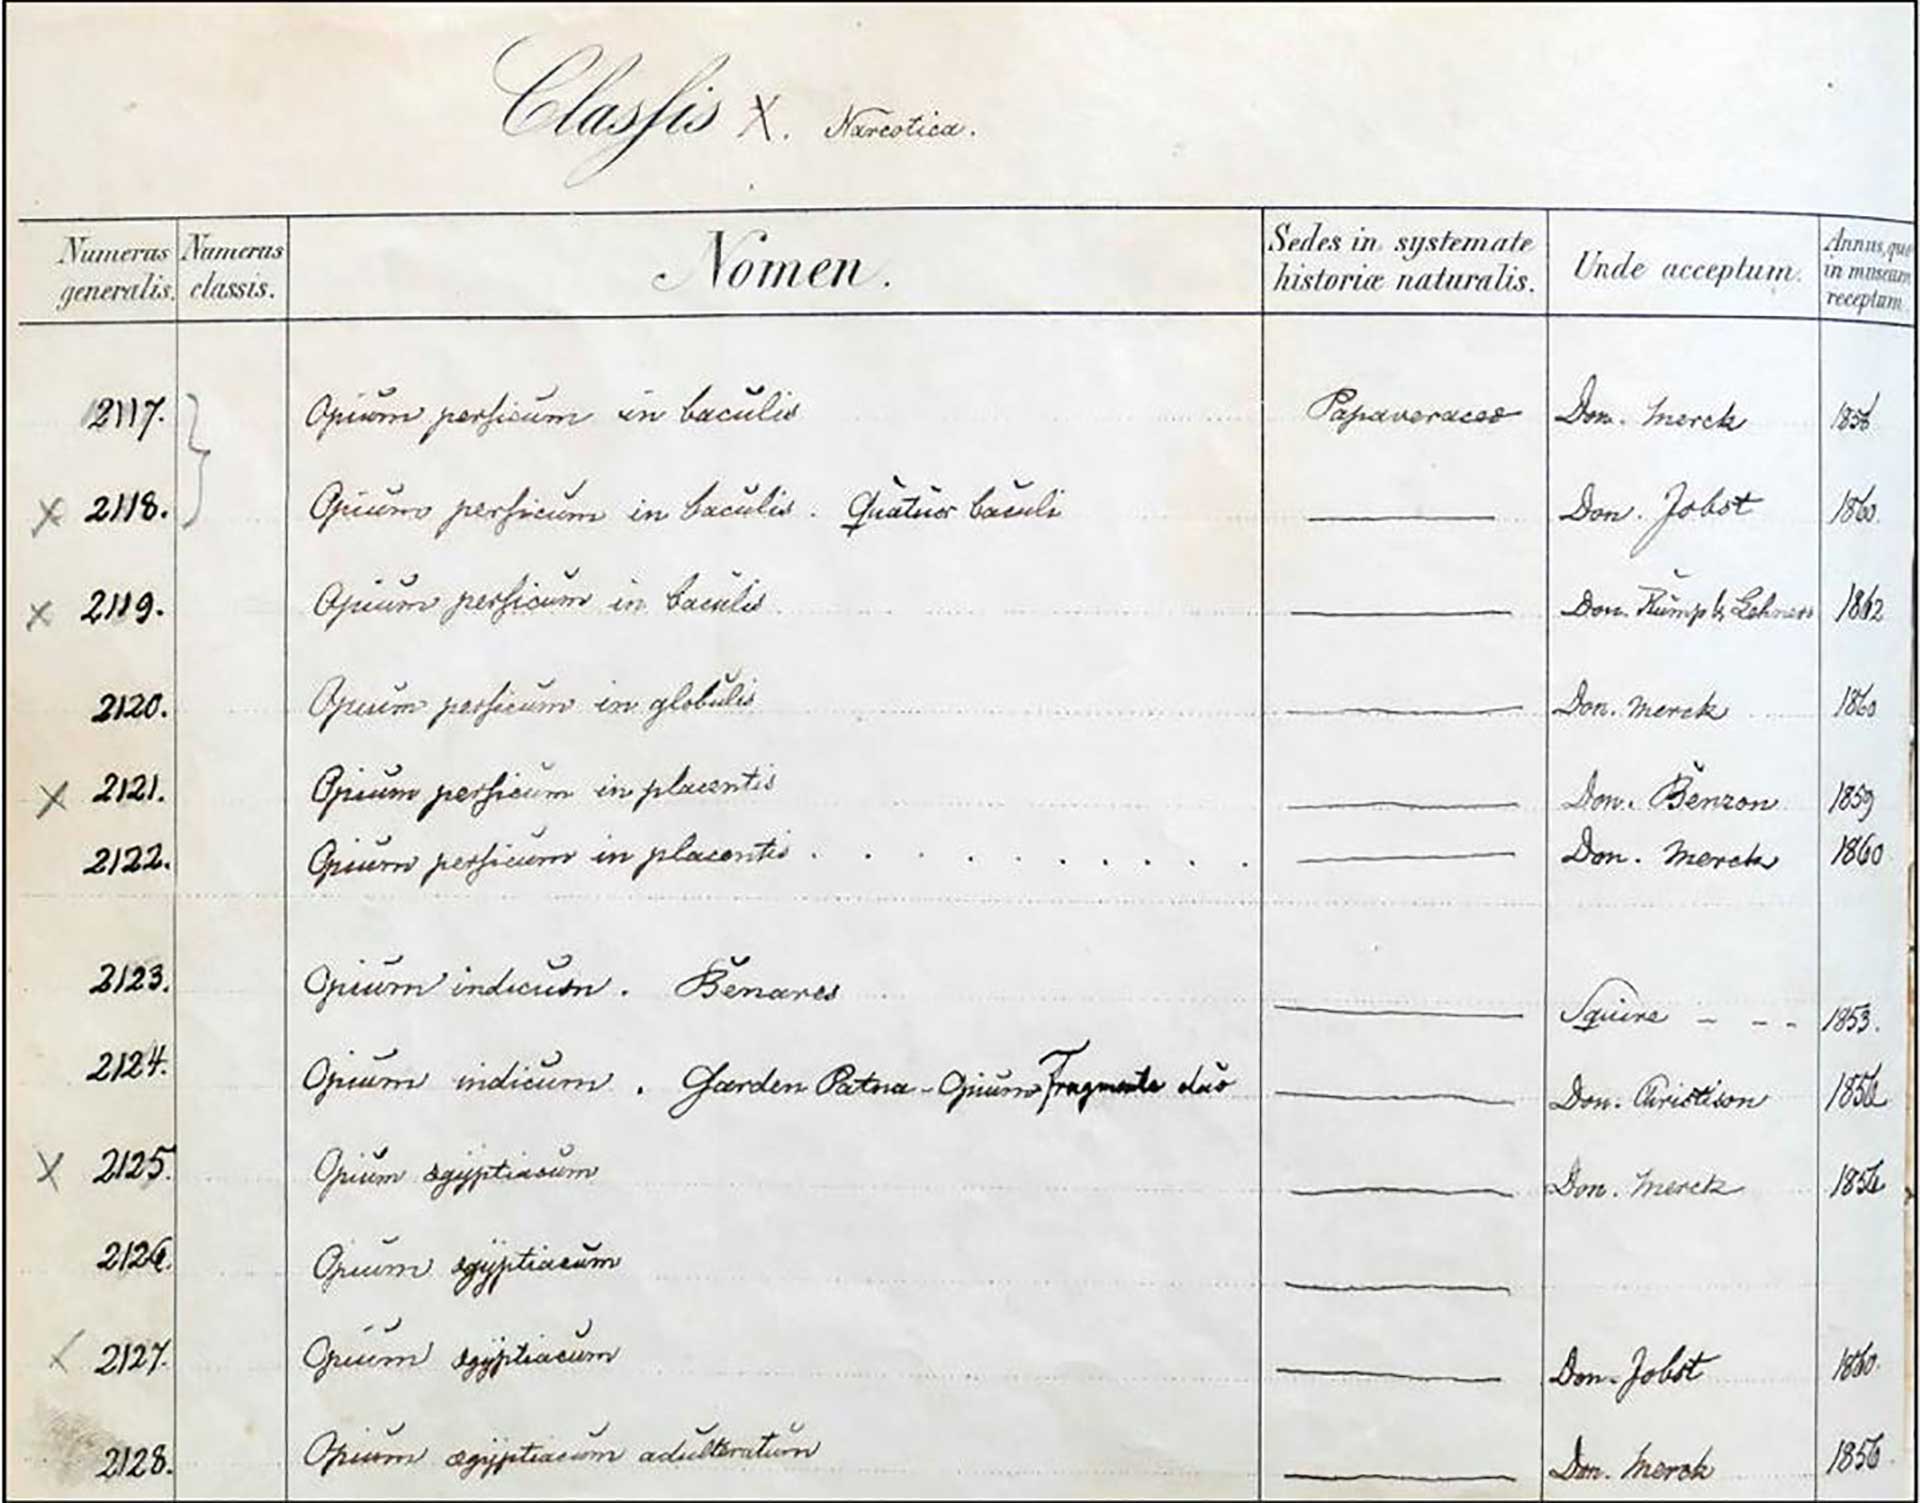 Classis X. Narcotica.
Numerus generalis. Numerus classis. Nomen. Sedes in systemate historiæ naturalis. Unde acceptum. Annus, quo in museum receptum.
2117. Opium persicum in baculis Papaveraceæ Don. Merck 1856
X 2118. Opium persicum in baculis. Quatuor baculi Don. Jobst 1860.
X 2119. Opium persicum in baculis Don. Rump & Lehners 1862
2120. Opium persicum in globulis Don. Merck 1860
X 2121. Opium persicum in placentis Don. Benzon 1859
2122. Opium persicum in placentis . . . . . . . . . . . Don. Merck 1860
2123. Opium indicum. Benares Squire - - - 1853.
2124. Opium indicum. Garden Patna-Opium Fragmenta duo Don. Christison 1856
X 2125. Opium ægyptiacum Don. Merck 1856
2126. Opium ægyptiacum
X 2127. Opium ægyptiacum Don. Jobst 1860.
2128. Opium ægyptiacum adulteratum Don. Merck 1856